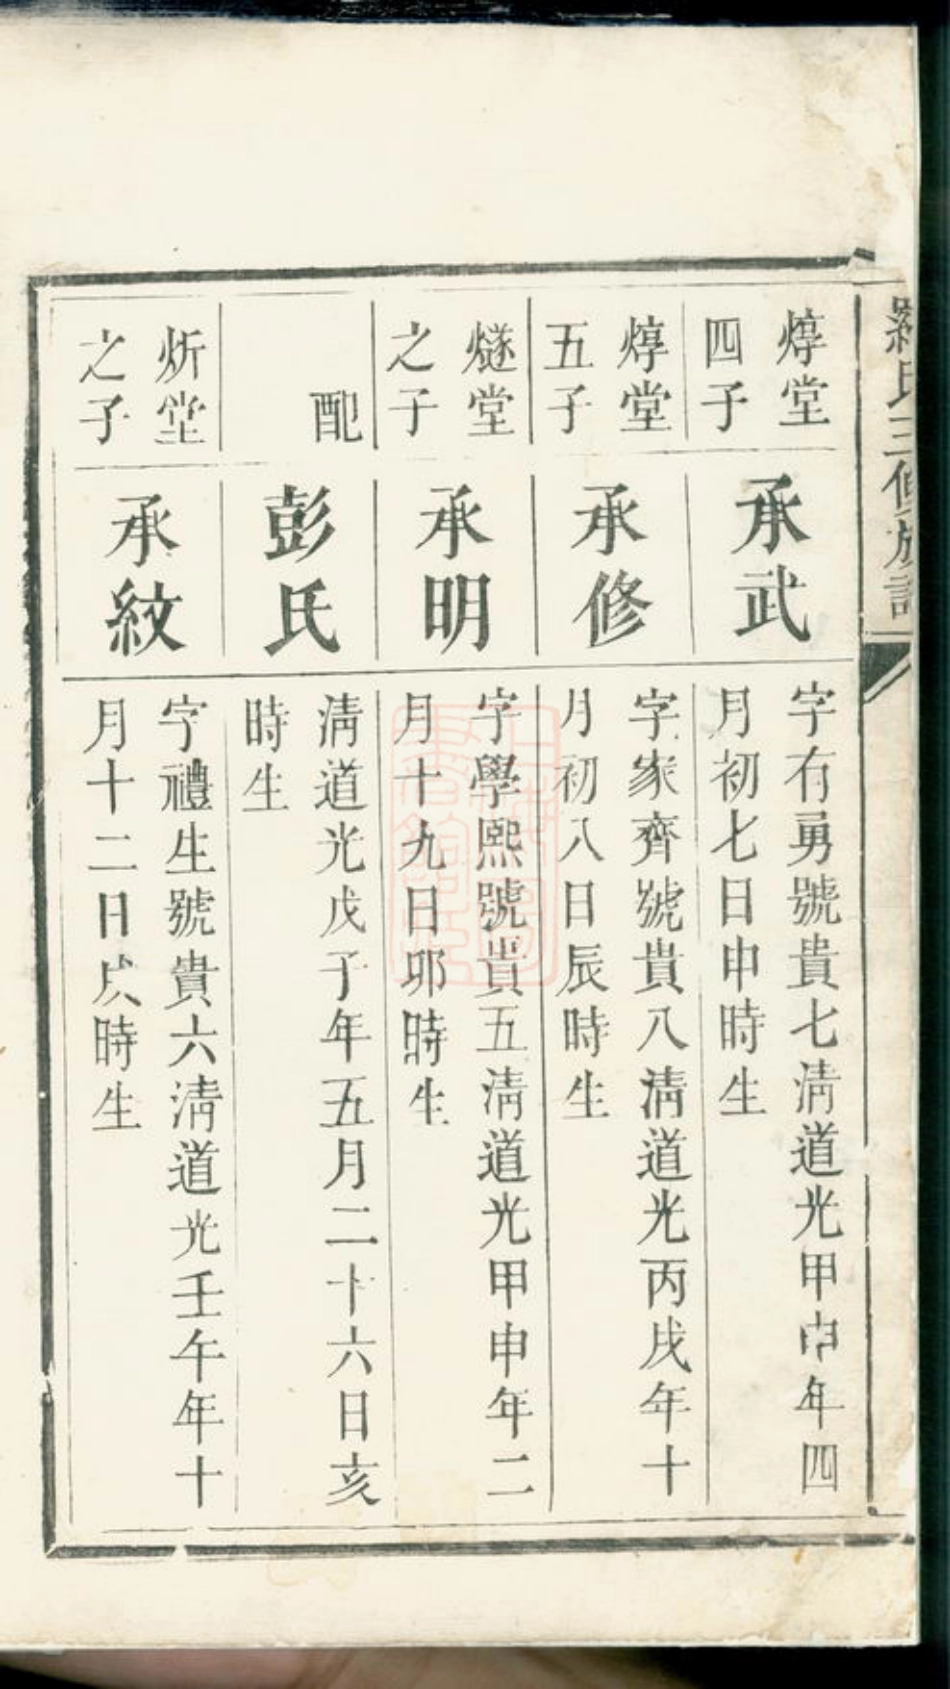 羅氏三修族譜
焞堂
四子
承武
字有勇號貴七淸道光甲申年四
月初七日申時生
焞堂
五子
承修
字家齊號貴八淸道光丙戌年十
月初八日辰時生
燧堂
之子
承明
字學熙號貴五淸道光甲申年二
月十九日卯時生
配
彭氏
淸道光戊子年五月二十六日亥
時生
炘堂
之子
承紋
字禮生號貴六淸道光壬午年十
月十二日戌時生